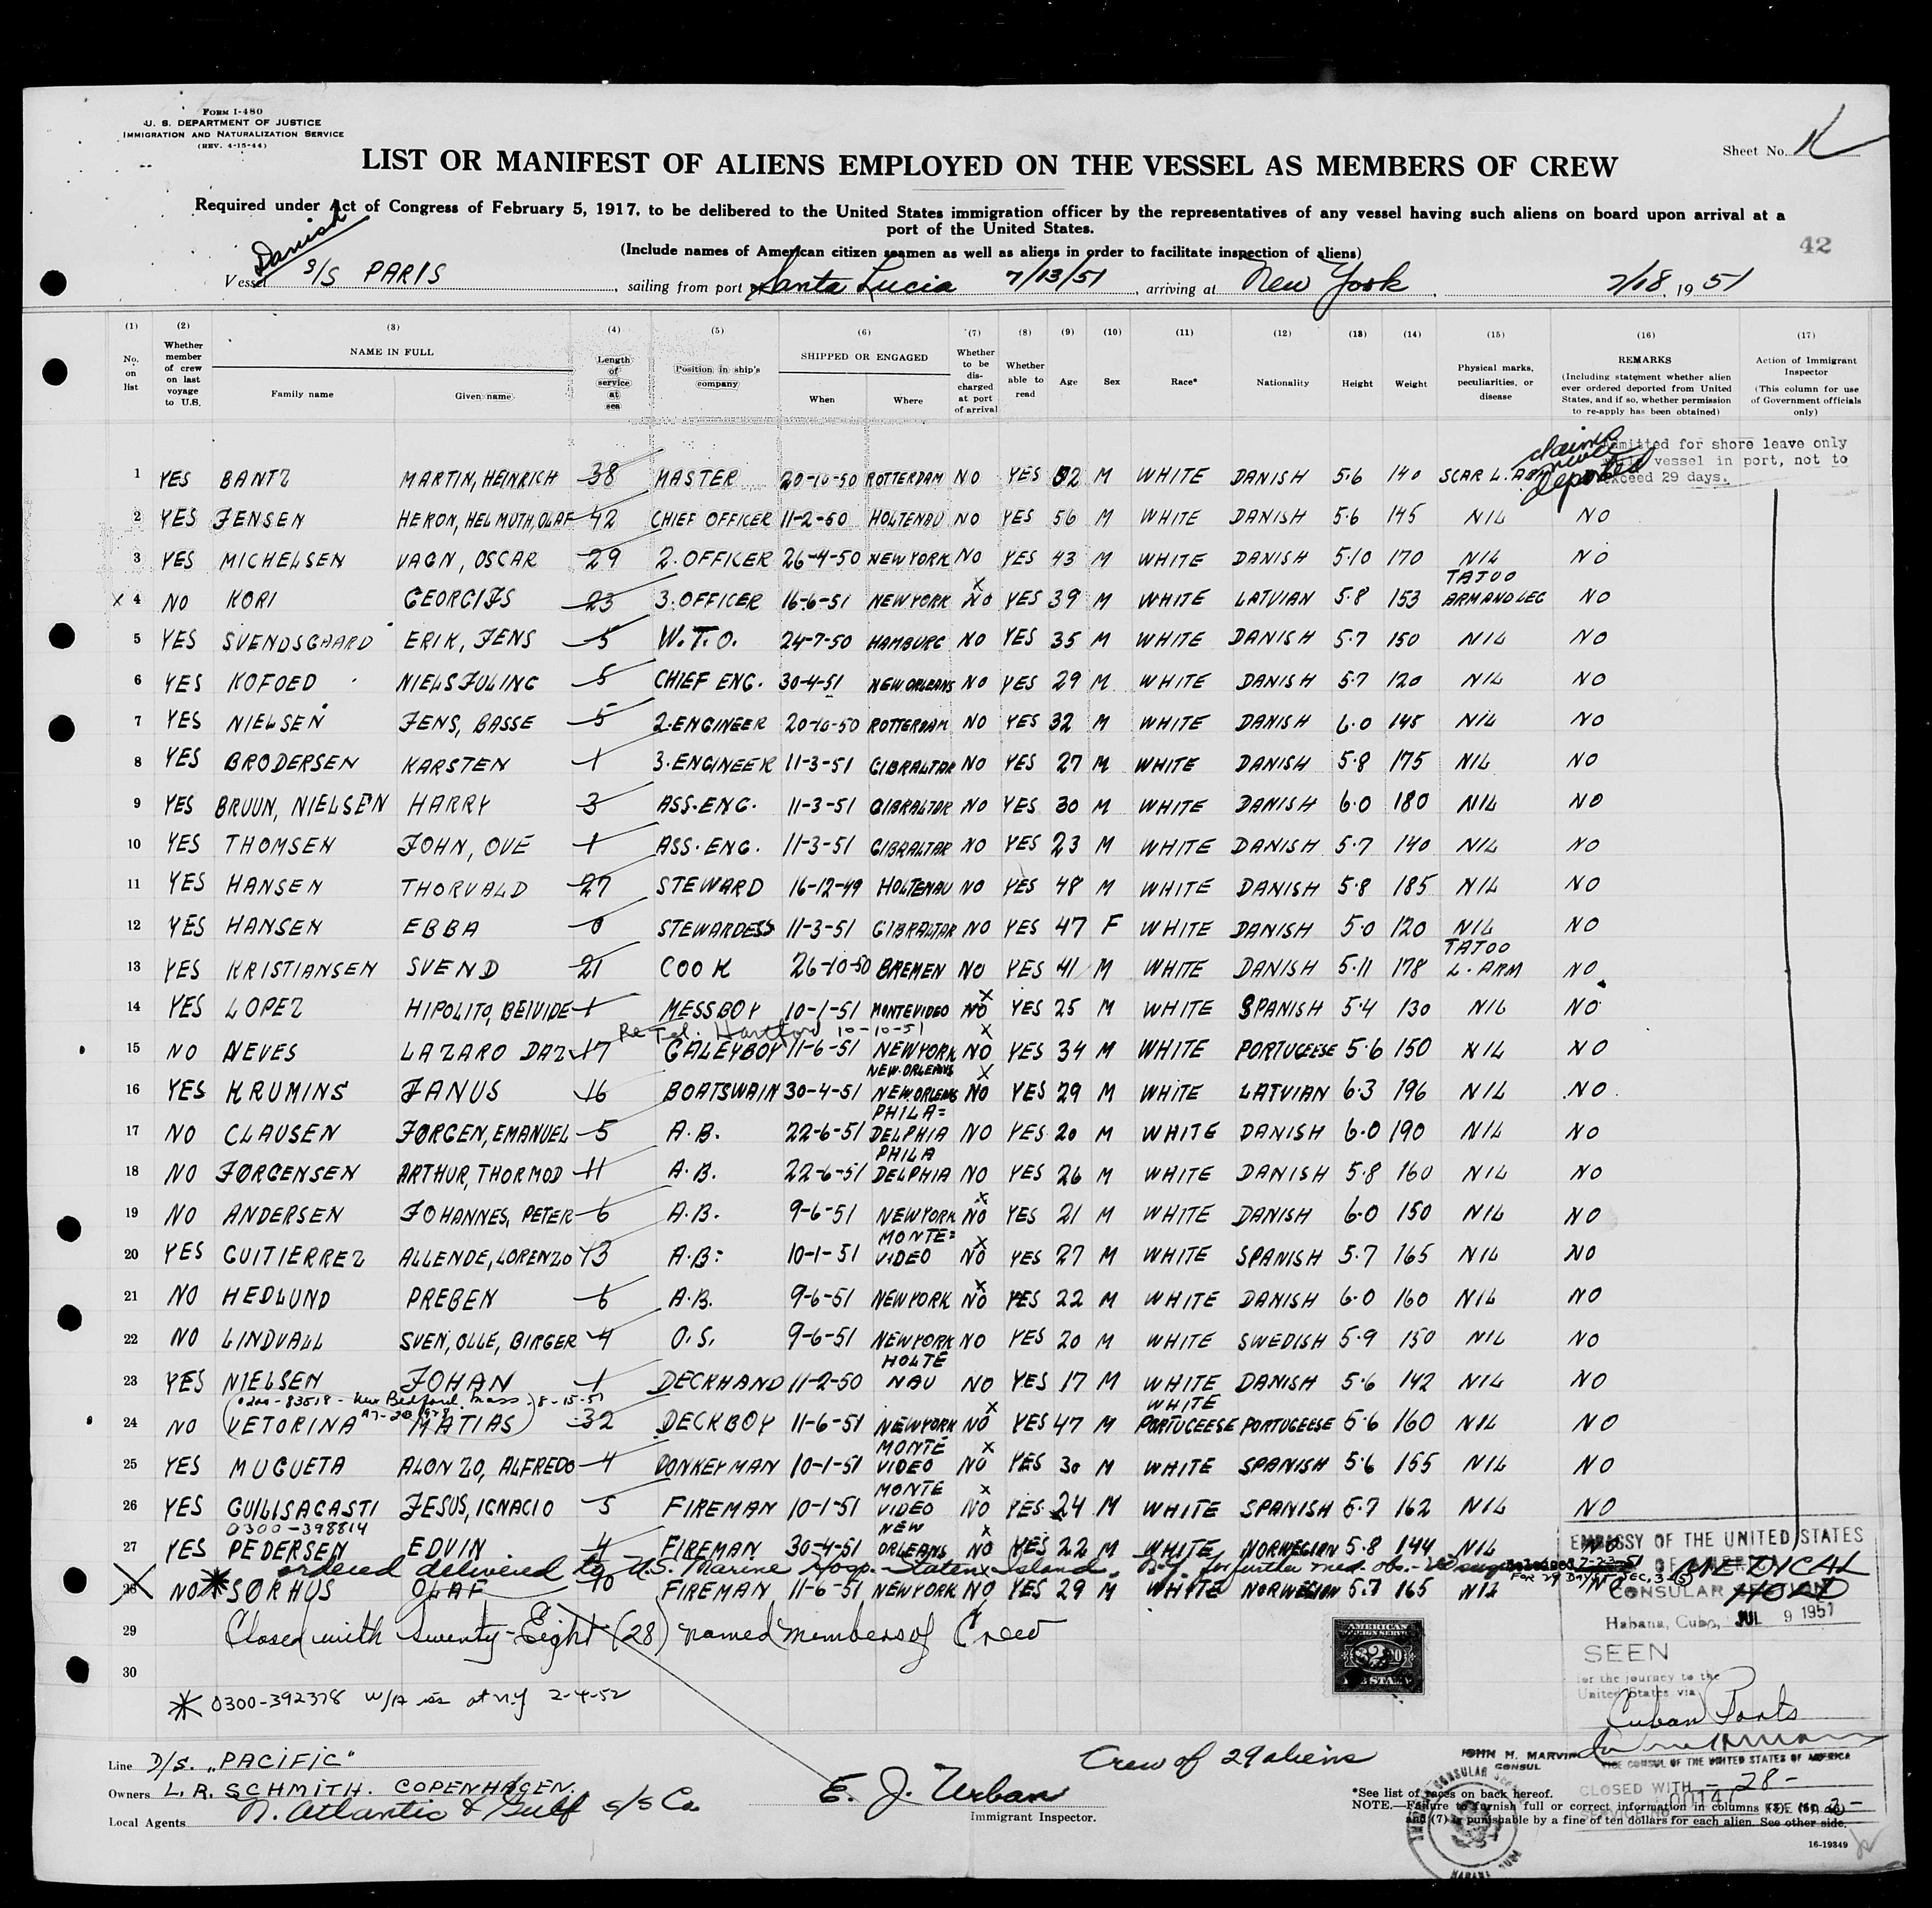 FORM I-480
U. S. DEPARTMENT OF JUSTICE
IMMIGRATION AND NATURALIZATION SERVICE
(REV. 4-15-44)
Sheet No.
LIST OR MANIFEST OF ALIENS EMPLOYED ON THE VESSEL AS MEMBERS OF CREW
Required under Act of Congress of February 5, 1917, to be delibered to the United States immigration officer by the representatives of any vessel having such aliens on board upon arrival at a
port of the United States.
(Include names of American citizen seamen as well as aliens in order to facilitate inspection of aliens)
42
Danish
Vessel S/S PARIS , sailing from port Santa Lucia 7/13/51 , arriving at New York , 7/18, 19 51
(1) (2) (3) (4) (5) (6) (7) (8) (9) (10) (11) (12) (13) (14) (15) (16) (17)
No. on list Whether member of crew on last voyage to U.S. NAME IN FULL Family name Given name Length of service at sea Position in ship's company SHIPPED OR ENGAGED When Where Whether to be discharged at port of arrival Whether able to read Age Sex Race* Nationality Height Weight Physical marks, peculiarities, or disease REMARKS (Including statement whether alien ever ordered deported from United States, and if so, whether permission to re-apply has been obtained) Action of Immigrant Inspector (This column for use of Government officials only)
claims never deported
Admitted for shore leave only
vessel in port, not to
exceed 29 days.
1 YES BANTZ MARTIN, HEINRICH 38 MASTER 20-10-50 ROTTERDAM NO YES 52 M WHITE DANISH 5.6 140 SCAR L. ARM
2 YES JENSEN HERON, HELMUTH, OLAF 42 CHIEF OFFICER 11-2-50 HOLTENAU NO YES 56 M WHITE DANISH 5.6 145 NIL NO
3 YES MICHELSEN VAGN, OSCAR 29 2. OFFICER 26-4-50 NEW YORK NO YES 43 M WHITE DANISH 5.10 170 NIL NO
X 4 NO KORI GEORGIJS 23 3. OFFICER 16-6-51 NEW YORK X NO YES 39 M WHITE LATVIAN 5.8 153 TATOO ARM AND LEG NO
5 YES SVENDSGAARD ERIK, JENS 5 W.T.O. 24-7-50 HAMBURG NO YES 35 M WHITE DANISH 5.7 150 NIL NO
6 YES KOFOED NIELS JULING 5 CHIEF ENG. 30-4-51 NEW ORLEANS NO YES 29 M WHITE DANISH 5.7 120 NIL NO
7 YES NIELSEN JENS, BASSE 5 2. ENGINEER 20-10-50 ROTTERDAM NO YES 32 M WHITE DANISH 6.0 145 NIL NO
8 YES BRODERSEN KARSTEN 1 3. ENGINEER 11-3-51 GIBRALTAR NO YES 27 M WHITE DANISH 5.8 175 NIL NO
9 YES BRUUN, NIELSEN HARRY 3 ASS. ENG. 11-3-51 GIBRALTAR NO YES 30 M WHITE DANISH 6.0 180 NIL NO
10 YES THOMSEN JOHN, OVE 1 ASS. ENG. 11-3-51 GIBRALTAR NO YES 23 M WHITE DANISH 5.7 140 NIL NO
11 YES HANSEN THORVALD 27 STEWARD 16-12-49 HOLTENAU NO YES 48 M WHITE DANISH 5.8 185 NIL NO
12 YES HANSEN EBBA 0 STEWARDESS 11-3-51 GIBRALTAR NO YES 47 F WHITE DANISH 5.0 120 NIL NO
13 YES KRISTIANSEN SVEND 21 COOK 26-10-50 BREMEN NO YES 41 M WHITE DANISH 5.11 178 TATOO L. ARM NO
14 YES LOPEZ HIPOLITO, BEIVIDE 1 MESSBOY 10-1-51 MONTEVIDEO X NO YES 25 M WHITE SPANISH 5.4 130 NIL NO
Re Tel. Hartford 10-10-51
15 NO NEVES LAZARO DAZ 17 GALEYBOY 11-6-51 NEW YORK X NO YES 34 M WHITE PORTUGEESE 5.6 150 NIL NO
16 YES KRUMINS JANUS 16 BOATSWAIN 30-4-51 NEW ORLEANS NEW ORLEANS X NO YES 29 M WHITE LATVIAN 6.3 196 NIL NO
17 NO CLAUSEN JØRGEN, EMANUEL 5 A.B. 22-6-51 PHILA= DELPHIA NO YES 20 M WHITE DANISH 6.0 190 NIL NO
18 NO JØRGENSEN ARTHUR, THORMOD 11 A.B. 22-6-51 PHILA DELPHIA NO YES 26 M WHITE DANISH 5.8 160 NIL NO
19 NO ANDERSEN JOHANNES, PETER 6 A.B. 9-6-51 NEW YORK X NO YES 21 M WHITE DANISH 6.0 150 NIL NO
20 YES GUITIERREZ ALLENDE, LORENZO 13 A.B. 10-1-51 MONTE= VIDEO X NO YES 27 M WHITE SPANISH 5.7 165 NIL NO
21 NO HEDLUND PREBEN 6 A.B. 9-6-51 NEW YORK X NO YES 22 M WHITE DANISH 6.0 160 NIL NO
22 NO LINDVALL SVEN, OLLE, BIRGER 4 O.S. 9-6-51 NEW YORK NO YES 20 M WHITE SWEDISH 5.9 150 NIL NO
23 YES NIELSEN JOHAN 1 DECKHAND 11-2-50 HOLTE NAU NO YES 17 M WHITE DANISH 5.6 142 NIL NO
(0200-83518 - New Bedford, Mass. 8-15-51
24 NO VETORINA MATIAS) 32 DECKBOY 11-6-51 NEW YORK X NO YES 47 M WHITE PORTUGEESE PORTUGEESE 5.6 160 NIL NO
25 YES MUGUETA ALONZO, ALFREDO 4 DONKEYMAN 10-1-51 MONTE VIDEO X NO YES 30 M WHITE SPANISH 5.6 155 NIL NO
26 YES GUILISAGASTI JESUS, IGNACIO 5 FIREMAN 10-1-51 MONTE VIDEO X NO YES 24 M WHITE SPANISH 5.7 162 NIL NO
0300-398814
27 YES PEDERSEN EDVIN 4 FIREMAN 30-4-51 NEW ORLEANS X NO YES 22 M WHITE NORWEGIAN 5.8 144 NIL NO
ordered delivered to U.S. Marine Hosp. Staten Island, N.Y. for further med. obs.
28 NO SØRHUS OLAF 10 FIREMAN 11-6-51 NEW YORK NO YES 29 M WHITE NORWEGIAN 5.7 165 NIL NO
MEDICAL HOLD
29 Closed with Twenty-Eight (28) named members of Crew
30
* 0300-392378 W/A iss at N.Y 2-4-52
EMBASSY OF THE UNITED STATES
OF AMERICA
CONSULAR
Habana, Cuba, JUL 9 1951
SEEN
for the journey to the
United States via
Cuban Ports
AMERICAN
FOREIGN SERVICE
FEE STAMP
JOHN H. MARVIN
CONSUL
VICE CONSUL OF THE UNITED STATES OF AMERICA
CLOSED WITH - 28 -
Line D/S. „PACIFIC"
Owners L. R. SCHMITH. COPENHAGEN.
Local Agents N. Atlantic & Gulf S/S Co.
E. J. Urban
Immigrant Inspector.
Crew of 29 aliens
*See list of races on back hereof.
NOTE.—Failure to furnish full or correct information in columns (3), (5), (6)
and (7) is punishable by a fine of ten dollars for each alien. See other side.
16-19349